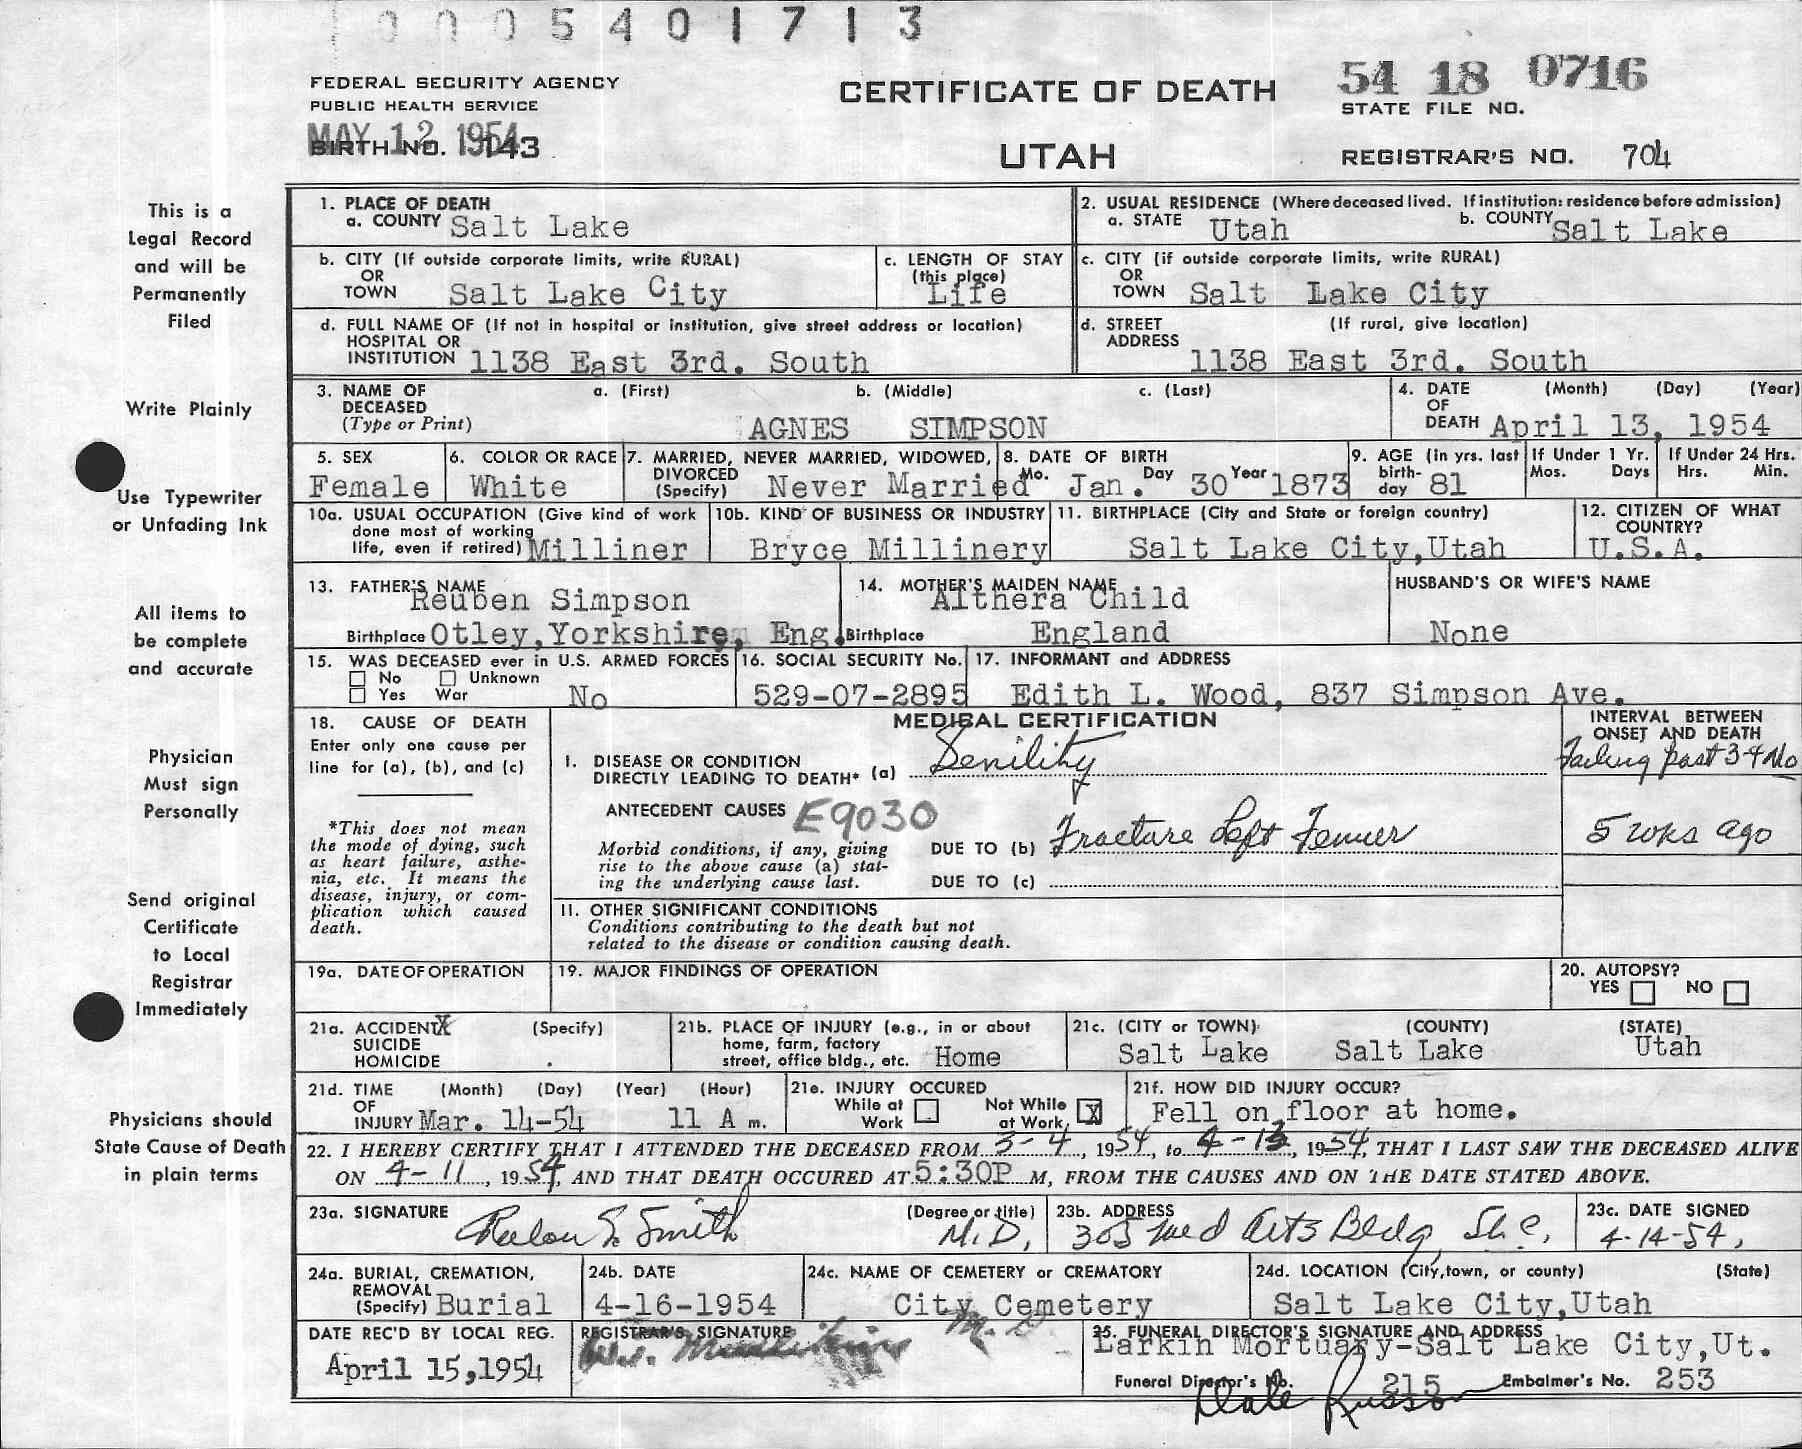 0005401713
FEDERAL SECURITY AGENCY
PUBLIC HEALTH SERVICE
MAY 12 1954
BIRTH NO. 143
CERTIFICATE OF DEATH
UTAH
54 18 0716
STATE FILE NO.
REGISTRAR'S NO. 704
This is a
Legal Record
and will be
Permanently
Filed
Write Plainly
Use Typewriter
or Unfading Ink
All items to
be complete
and accurate
Physician
Must sign
Personally
Send original
Certificate
to Local
Registrar
Immediately
Physicians should
State Cause of Death
in plain terms
1. PLACE OF DEATH
a. COUNTY Salt Lake
2. USUAL RESIDENCE (Where deceased lived. If institution: residence before admission)
a. STATE Utah b. COUNTY Salt Lake
b. CITY (If outside corporate limits, write RURAL)
OR
TOWN Salt Lake City
c. LENGTH OF STAY
(this place)
Life
c. CITY (if outside corporate limits, write RURAL)
OR
TOWN Salt Lake City
d. FULL NAME OF (If not in hospital or institution, give street address or location)
HOSPITAL OR
INSTITUTION 1138 East 3rd. South
d. STREET (If rural, give location)
ADDRESS
1138 East 3rd. South
3. NAME OF a. (First) b. (Middle) c. (Last)
DECEASED
(Type or Print) AGNES SIMPSON
4. DATE (Month) (Day) (Year)
OF
DEATH April 13, 1954
5. SEX
Female
6. COLOR OR RACE
White
7. MARRIED, NEVER MARRIED, WIDOWED,
DIVORCED
(Specify) Never Married
8. DATE OF BIRTH
Mo. Jan. Day 30 Year 1873
9. AGE (in yrs. last
birth-
day 81
If Under 1 Yr.
Mos. Days
If Under 24 Hrs.
Hrs. Min.
10a. USUAL OCCUPATION (Give kind of work
done most of working
life, even if retired) Milliner
10b. KIND OF BUSINESS OR INDUSTRY
Bryce Millinery
11. BIRTHPLACE (City and State or foreign country)
Salt Lake City, Utah
12. CITIZEN OF WHAT
COUNTRY?
U.S.A.
13. FATHER'S NAME
Reuben Simpson
Birthplace Otley, Yorkshire, Eng.
14. MOTHER'S MAIDEN NAME
Althera Child
Birthplace England
HUSBAND'S OR WIFE'S NAME
None
15. WAS DECEASED ever in U.S. ARMED FORCES
No Unknown
Yes War No
16. SOCIAL SECURITY No.
529-07-2895
17. INFORMANT and ADDRESS
Edith L. Wood, 837 Simpson Ave.
18. CAUSE OF DEATH
Enter only one cause per
line for (a), (b), and (c)
*This does not mean
the mode of dying, such
as heart failure, asthe-
nia, etc. It means the
disease, injury, or com-
plication which caused
death.
MEDICAL CERTIFICATION
I. DISEASE OR CONDITION
DIRECTLY LEADING TO DEATH* (a) Senility
ANTECEDENT CAUSES E9030
Morbid conditions, if any, giving
rise to the above cause (a) stat-
ing the underlying cause last.
DUE TO (b) Fracture Left Femur
DUE TO (c)
INTERVAL BETWEEN
ONSET AND DEATH
Failing past 3-4 Mo
5 wks ago
II. OTHER SIGNIFICANT CONDITIONS
Conditions contributing to the death but not
related to the disease or condition causing death.
19a. DATE OF OPERATION
19. MAJOR FINDINGS OF OPERATION
20. AUTOPSY?
YES NO
21a. ACCIDENT X (Specify)
SUICIDE
HOMICIDE
21b. PLACE OF INJURY (e.g., in or about
home, farm, factory
street, office bldg., etc. Home
21c. (CITY or TOWN) (COUNTY) (STATE)
Salt Lake Salt Lake Utah
21d. TIME (Month) (Day) (Year) (Hour)
OF
INJURY Mar. 14-54 11 A m.
21e. INJURY OCCURED
While at Work Not While at Work X
21f. HOW DID INJURY OCCUR?
Fell on floor at home.
22. I HEREBY CERTIFY THAT I ATTENDED THE DECEASED FROM 3-4, 1954, to 4-13, 1954, THAT I LAST SAW THE DECEASED ALIVE
ON 4-11, 1954, AND THAT DEATH OCCURED AT 5:30P M, FROM THE CAUSES AND ON THE DATE STATED ABOVE.
23a. SIGNATURE (Degree or title)
S. Smith M.D.
23b. ADDRESS
305 Med Arts Bldg, SLC,
23c. DATE SIGNED
4-14-54,
24a. BURIAL, CREMATION,
REMOVAL
(Specify) Burial
24b. DATE
4-16-1954
24c. NAME OF CEMETERY or CREMATORY
City Cemetery
24d. LOCATION (City, town, or county) (State)
Salt Lake City, Utah
DATE REC'D BY LOCAL REG.
April 15, 1954
REGISTRAR'S SIGNATURE
M.D.
25. FUNERAL DIRECTOR'S SIGNATURE AND ADDRESS
Larkin Mortuary-Salt Lake City, Ut.
Funeral Director's No. 215 Embalmer's No. 253
Dale Russon